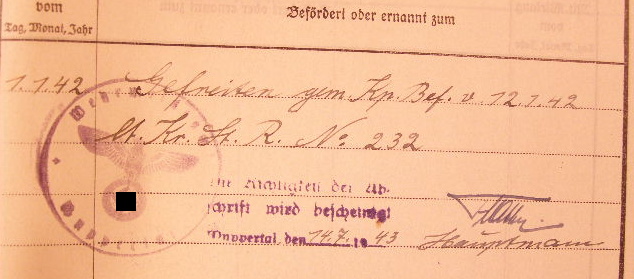 vom
Tag, Monat, Jahr
Befördert oder ernannt zum
1.1.42 Gefreiten gem. Kp. Bef. v 12.1.42
lt. Kr. St. R. No 232
Die Richtigkeit der Ab-
schrift wird bescheinigt
Wuppertal, den 14.7. 1943
Hauptmann